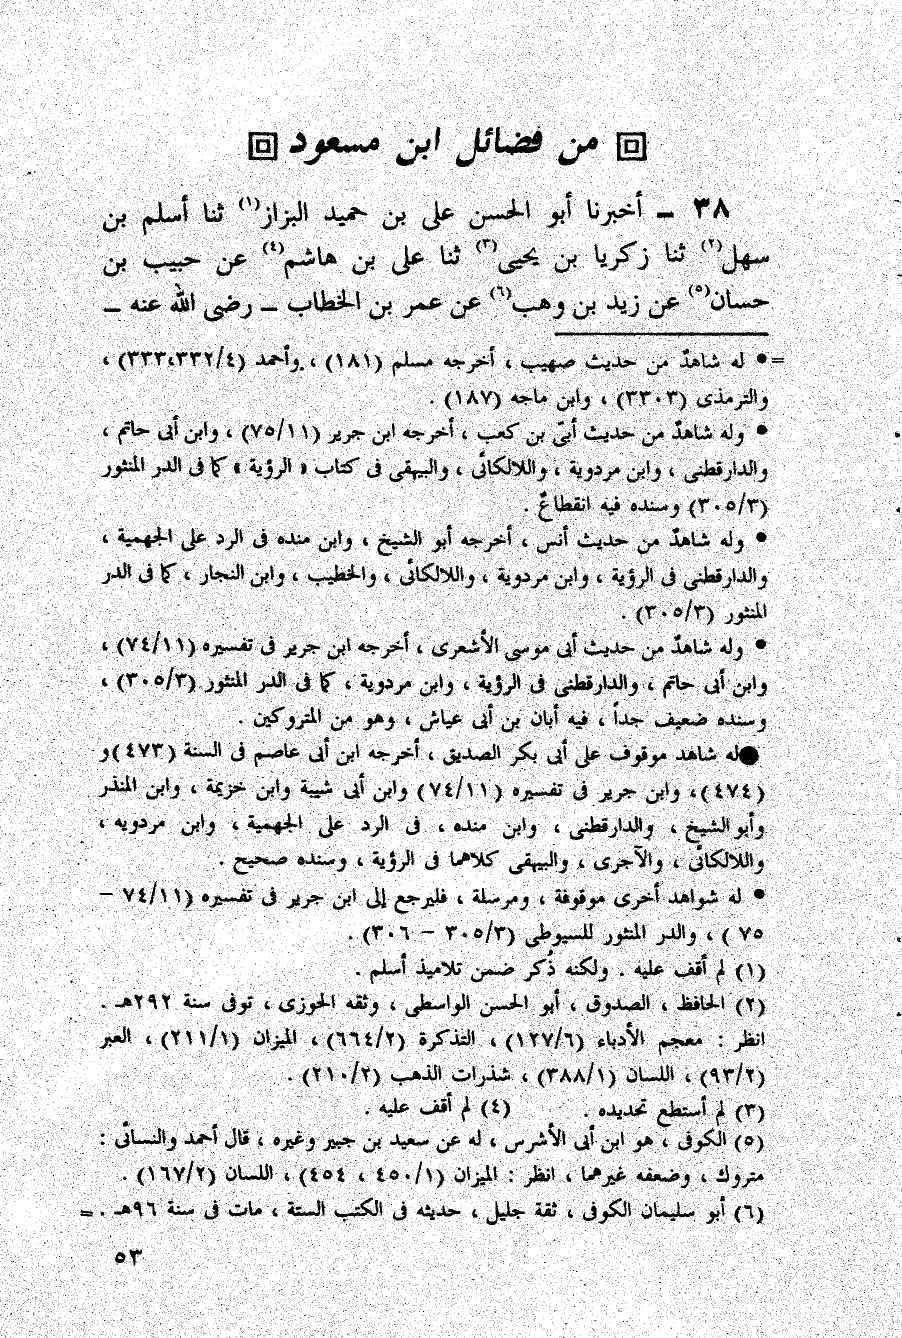 من فضائل ابن مسعود
٣٨ ــ أخبرنا أبو الحسن على بن حميد البزاز(١) ثنا أسلم بن
سهل(٢) ثنا زكريا بن يحيى(٣) ثنا على بن هاشم(٤) عن حبيب بن
حسان(٥) عن زيد بن وهب(٦) عن عمر بن الخطاب ــ رضى الله عنه ــ
=• له شاهدٌ من حديث صهيب ، أخرجه مسلم (١٨١) ، وأحمد (٣٣٣،٣٣٢/٤) ،
والترمذى (٣٣٠٣) ، وابن ماجه (١٨٧) .
• وله شاهدٌ من حديث أبىّ بن كعب ، أخرجه ابن جرير (٧٥/١١) ، وابن أبى حاتم ،
والدارقطنى ، وابن مردوية ، واللالكائى ، والبيهقى فى كتاب « الرؤية » كما فى الدر المنثور
(٣٠٥/٣) وسنده فيه انقطاعٌ .
• وله شاهدٌ من حديث أنس ، أخرجه أبو الشيخ ، وابن منده فى الرد على الجهمية ،
والدارقطنى فى الرؤية ، وابن مردوية ، واللالكائى ، والخطيب ، وابن النجار ، كما فى الدر
المنثور (٣٠٥/٣) .
• وله شاهدٌ من حديث أبى موسى الأشعرى ، أخرجه ابن جرير فى تفسيره (٧٤/١١) ،
وابن أبى حاتم ، والدارقطنى فى الرؤية ، وابن مردوية ، كما فى الدر المنثور (٣٠٥/٣) ،
وسنده ضعيف جداً ، فيه أبان بن أبى عياش ، وهو من المتروكين .
● له شاهد موقوف على أبى بكر الصديق ، أخرجه ابن أبى عاصم فى السنة (٤٧٣) و
(٤٧٤)، وابن جرير فى تفسيره (٧٤/١١) وابن أبى شيبة وابن خزيمة ، وابن المنذر
وأبو الشيخ ، والدارقطنى ، وابن منده ، فى الرد على الجهمية ، وابن مردويه ،
واللالكائى ، والآجرى ، والبيهقى كلاهما فى الرؤية ، وسنده صحيح .
• له شواهد أخرى موقوفة ، ومرسلة ، فليرجع إلى ابن جرير فى تفسيره (٧٤/١١ –
٧٥ ) ، والدر المنثور للسيوطى (٣٠٥/٣ – ٣٠٦) .
(١) لم أقف عليه . ولكنه ذُكر ضمن تلاميذ أسلم .
(٢) الحافظ ، الصدوق ، أبو الحسن الواسطى ، وثقه الحوزى ، توفى سنة ٢٩٢هـ .
انظر : معجم الأدباء (١٢٧/٦) ، التذكرة (٦٦٤/٢) ، الميزان (٢١١/١) ، العبر
(٩٣/٢) ، اللسان (٣٨٨/١) ، شذرات الذهب (٢١٠/٢) .
(٣) لم أستطع تحديده . (٤) لم أقف عليه .
(٥) الكوفى ، هو ابن أبى الأشرس ، له عن سعيد بن جبير وغيره ، قال أحمد والنسائى :
متروك ، وضعفه غيرهما ، انظر : الميزان (٤٥٠/١ ، ٤٥٤) ، اللسان (١٦٧/٢) .
(٦) أبو سليمان الكوفى ، ثقة جليل ، حديثه فى الكتب الستة ، مات فى سنة ٩٦هـ .=
٥٣